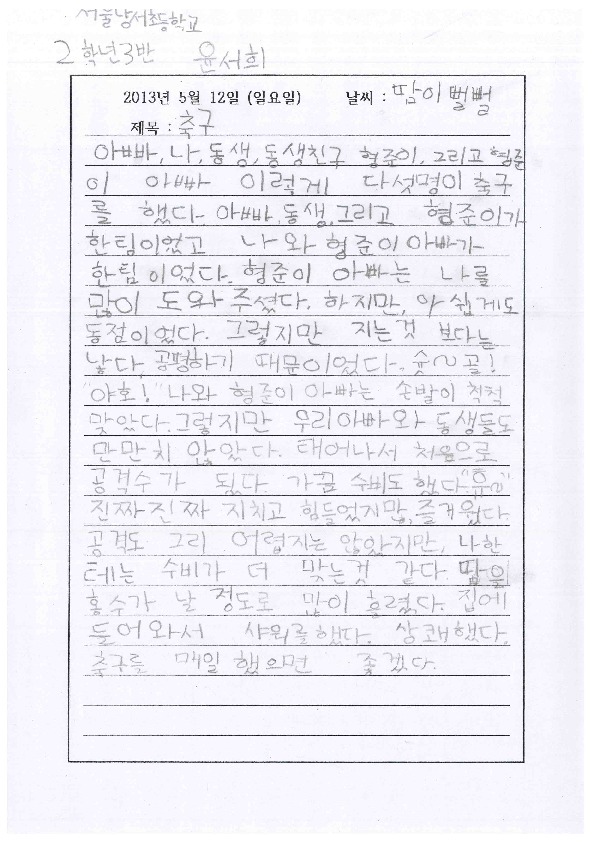 서울남서초등학교
2학년3반 윤서희
2013년 5월 12일 (일요일) 날씨 : 땀이뻘뻘
제목 : 축구
아빠, 나, 동생, 동생친구 형준이, 그리고 형준
이 아빠 이렇게 다섯명이 축구
를 했다. 아빠, 동생, 그리고 형준이가
한팀이었고 나와 형준이 아빠가
한팀이었다. 형준이 아빠는 나를
많이 도와주셨다. 하지만, 아쉽게도
동점이었다. 그렇지만 지는것 보다는
낳다. 공평하기 때문이었다. 슛~골!
"야호!" 나와 형준이 아빠는 손발이 척척
맞았다. 그렇지만 우리아빠와 동생들도
만만치 않았다. 태어나서 처음으로
공격수가 됬다. 가끔 수비도 했다. "휴~"
진짜진짜 지치고 힘들었지만, 즐거웠다.
공격도 그리 어렵지는 않았지만, 나한
테는 수비가 더 맞는것 같다. 땀을
홍수가 날 정도로 많이 흘렸다. 집에
들어와서 샤워를했다. 상쾌했다.
축구를 매일 했으면 좋겠다.